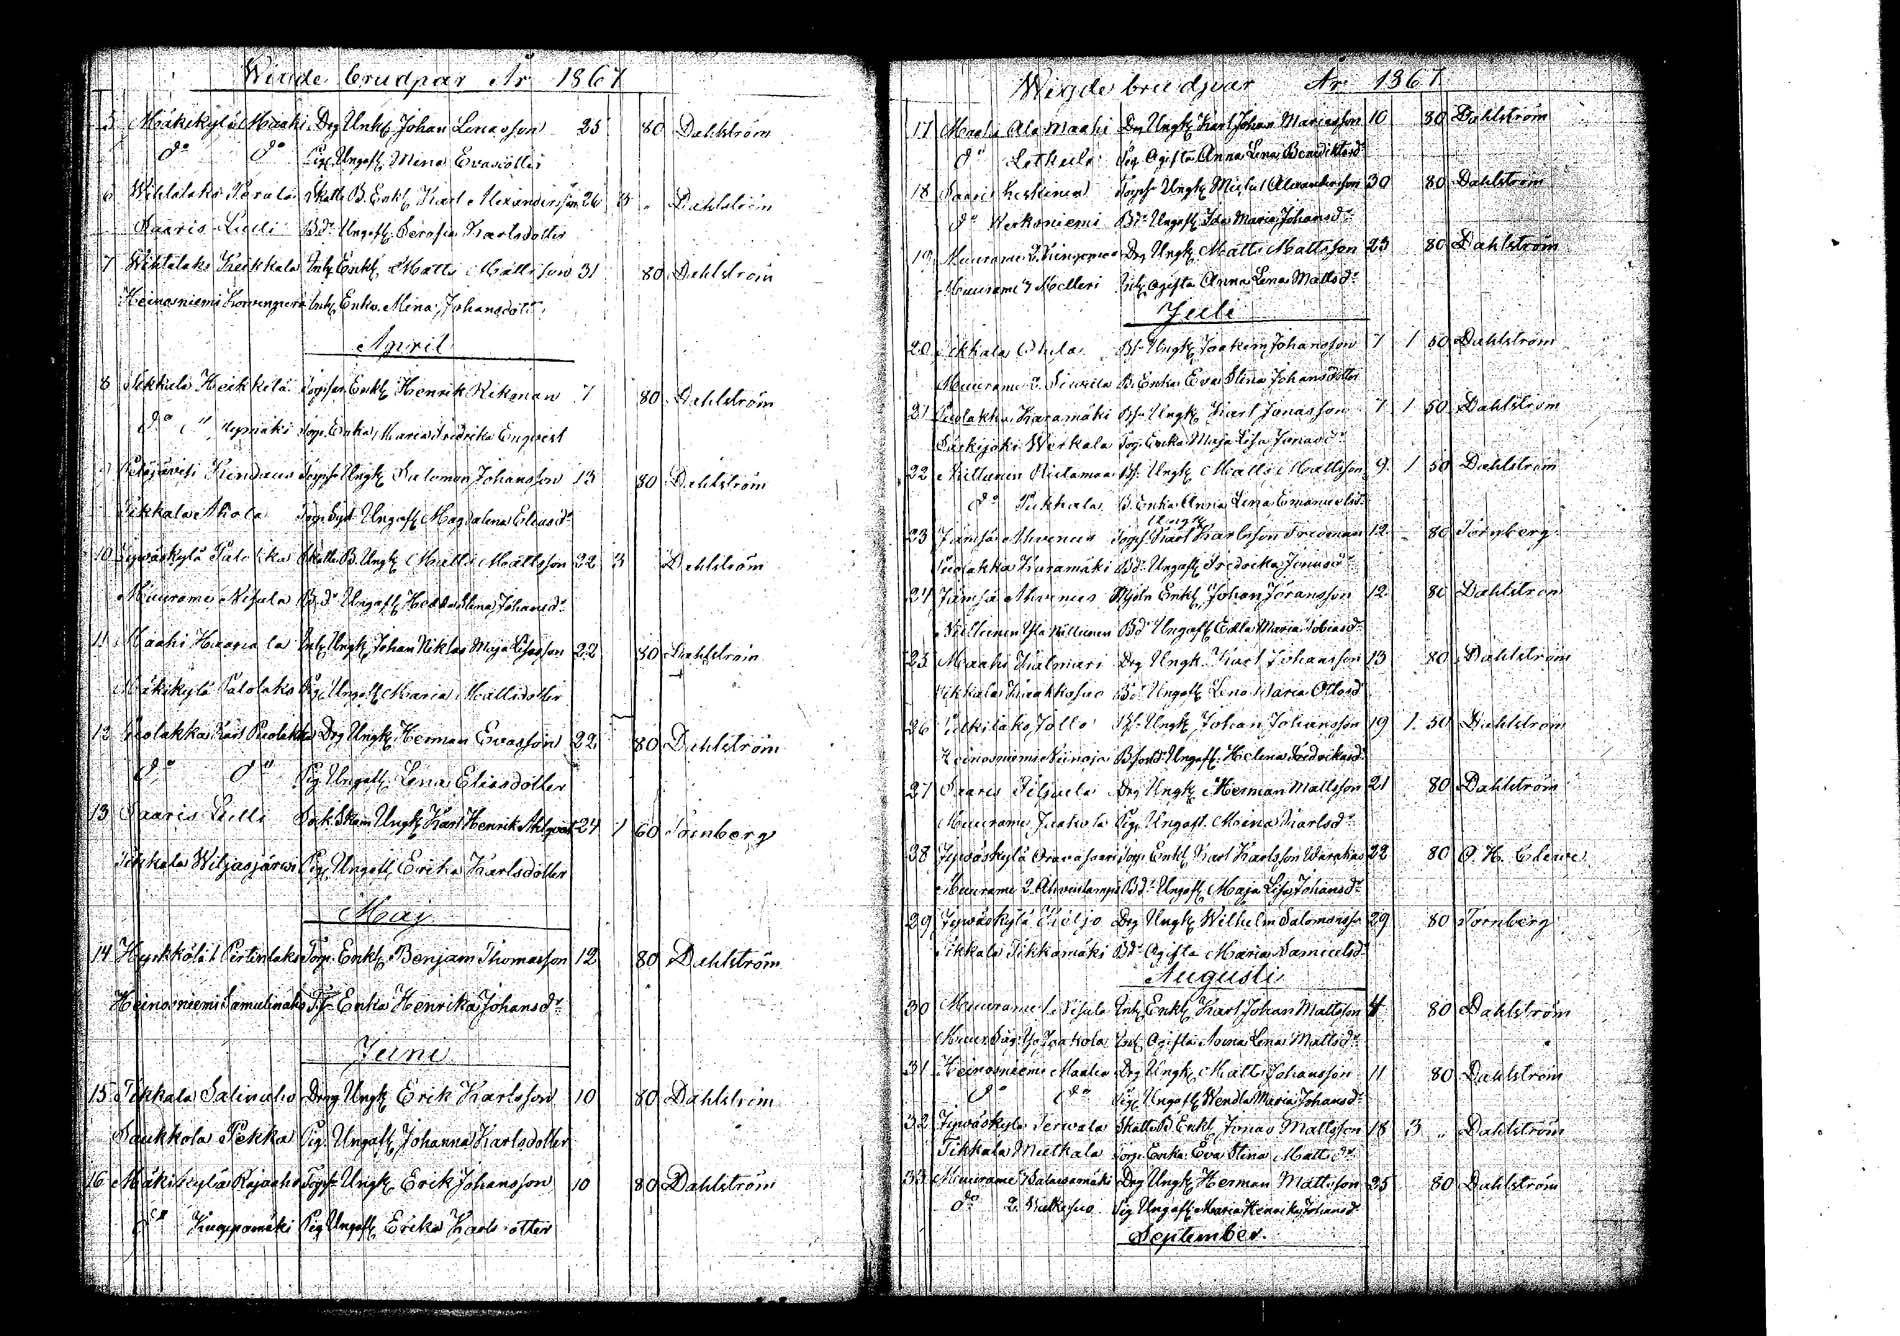 Wigde brudpar År 1867
5 Mäkikylä Maahi Drg Ungk Johan Lenasson 25 80 Dahlström
do do Pig. Ungaft Mina Evasdotter
6 Wihtalaks Skatte B. Enkl Karl Alexandersson 26 3 " Dahlström
Saaris Lulli Bdr Ungaft Serafia Karlsdotter
7 Wihtalaks Keikkala Inh. Enkl Matts Mattsson 31 80 Dahlström
Heinosniemi Korvenperä Inh. Enka Mina Johansdotr
April
8 Tikkala Heikkilä Torpar Enkl Henrik Kikonan 7 80 Dahlström
do Torp. Enka Maria Fredrika Enqvist
9 Petäjävesi Torpson Ungk Salomon Johansson 13 80 Dahlström
Tikkala Ahola Torp. Ungaft Magdalena Eliasdr
10 Jywäskylä Skatte B. Ungk Matts Mattsson 22 3 Dahlström
Muurame Nisula Bd. Ungaft Hedda Stina Johansdr
11 Maahi Haapala Inh. Ungk Johan Niklas Maja Lisasson 22 80 Dahlström
Mäkikylä Palolaks Pig. Ungaft Maria Mattsdotter
12 Puolakka Puolakka Drg Ungk Herman Evasson 22 80 Dahlström
do do Pig. Ungaft Lena Eliasdotter
13 Saaris Lulli Sok. Skom Ungk Karl Henrik Ahlqvist 24 1 60 Törnberg
Tikkala Wiljasjärwi Pig. Ungaft Erika Karlsdotter
Maj
14 Hyrkkölä Pertinlaks Torp. Enkl Benjam Thomasson 12 80 Dahlström
Heinosniemi Samulinaho Enka Henrika Johansdr
Juni
15 Tikkala Salinaho Dreng Ungk Erik Karlsson 10 80 Dahlström
Saukkola Pekka Pig. Ungaft Johanna Karlsdotter
16 Mäkikylä Rajaaho Torpson Ungk Erik Johansson 10 80 Dahlström
do Kuappamäki Pig Ungaft Erika Karlsdotter
Wigde brudpar År 1867
17 Maahi Ala Maahi Drg Ungk Karl Johan Mariasson 10 80 Dahlström
do Letkula Pig. Ogifta Anna Lena Benediktsdr
18 Saaris Keskinen Torpson Ungk Michel Alexandersson 30 80 Dahlström
do Werkoniemi Bdr Ungaft Ida Maria Johansdr
19 Muurame Drg Ungk Matts Mattsson 23 80 Dahlström
Muurame 7 Melleri Inh. ogifta Anna Lena Mattsdr
Juli
20 Tikkala Ohula Bs. Ungk Joakim Johansson 7 1 50 Dahlström
Muurame 2. B. Enka Eva Stina Johansdotter
21 Puolakka Karamäki Bson Ungk Karl Jonasson 7 1 50 Dahlström
Särkijoki Werkala Torp. Enka Maja Lisa Jonasdr
22 Nillunen Bs. Ungk Matts Mattsson 9 1 50 Dahlström
do Pukkala B. Enka Anna Lena Emanuelsdr
23 Jämsä Ahvenus Torpson Ungk Karl Karlsson Fredman 12 80 Törnberg
Puolakka Karamäki Bdr Ungaft Fredrika Jonasdr
24 Jämsä Ahvenus Enkl Johan Jöransson 12 80 Dahlström
Nillunen Yla Nillunen Bdr Ungaft Edla Maria Tobiasdr
25 Maahi Kalmari Drg Ungk Karl Johansson 13 80 Dahlström
Tikkala Kuukkasuo Bdr Ungaft Lena Maria Ottosdr
26 Putkilaks Jolla Bs. Ungk Johan Johansson 19 1 50 Dahlström
Heinosniemi Bsondr Ungaft Helena Fredriksdr
27 Saaris Drg Ungk Herman Mattsson 21 80 Dahlström
Muurame Jaakola Pig. Ungaft Maria Karlsdr
28 Jywäskylä Orawasaari Torp. Enkl Karl Karlsson Warakas 22 80 O. H. Cleve
Muurame 2. Ahvenlampi Bdr Ungaft Maja Lisa Johansdr
29 Jywäskylä Keljo Drg Ungk Wilhelm Salomonsson 29 80 Törnberg
Tikkala Tikkamäki Bdr Ogifta Maria Samuelsdr
Augusti
30 Muurame 1. Nisula Inh. Enkl Karl Johan Mattsson 4 80 Dahlström
Jaakola Inh. Ogifta Anna Lena Mattsdr
31 Heinosniemi Maalia Drg Ungk Matts Johansson 11 80 Dahlström
do do Pig. Ungaft Wendla Maria Johansdr
32 Jywäskylä Terwala Skatte B. Enkl Jonas Mattsson 18 3 " Dahlström
Tikkala Mutkala Torp. Enka Eva Stina Mattsdr
33 Muurame 7 Salawamäki Drg Ungk Herman Mattsson 25 80 Dahlström
do 2. Walkasuo Pig Ungaft Maria Henrika Johansdr
September.